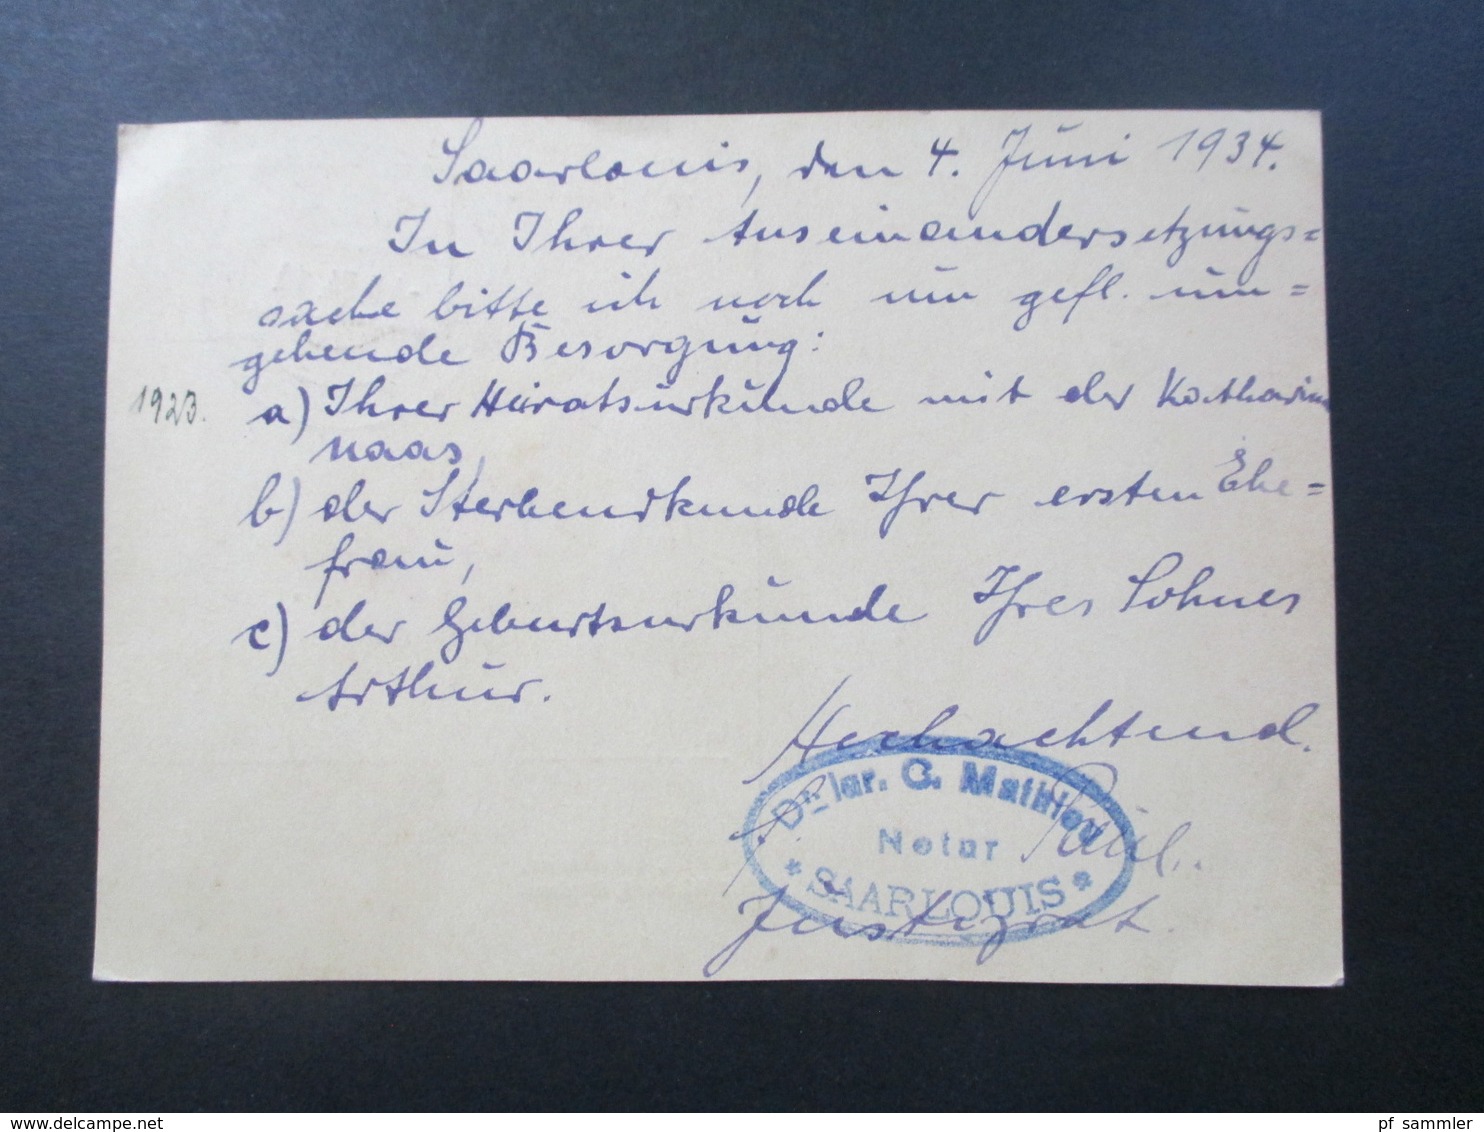 Saarlouis, den 4. Juni 1934.
In Ihrer Auseinandersetzungs=
sache bitte ich noch um gefl. um=
gehende Besorgung:
1923.
a) Ihrer Heiratsurkunde mit der Katharina
Naas,
b) der Sterbeurkunde Ihrer ersten Ehe=
frau,
c) der Geburtsurkunde Ihres Sohnes
Arthur.
Hochachtend.
Dr. jur. G. Mathieu
Notar
* SAARLOUIS *
Paul.
Justizrat.
www.delcampe.net
pf_sammler